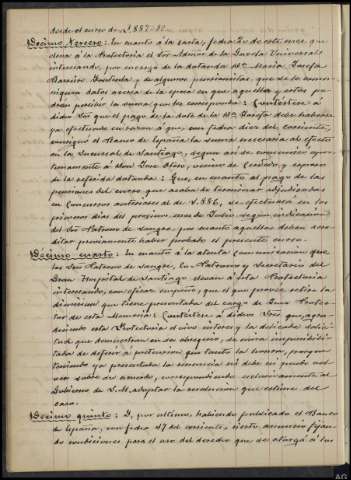 desde el curso de 1887-88.
Décimo tercero: En cuanto á la carta, fecha 20 de este mes que
eleva á la Protectoría el Sor Admor de la Questa Universal
interesando, por encargo de la dotanda Dª María Josefa
Barreiro y de algunos pensionistas, que se le sumi-
nistren datos acerca de la época en que aquella y estos pu-
dran percibir la suma que les corresponda: Contéstese á
dicho Sor que el pago de la dote de la Dª Josefa debe hallarse
ya efectuado en razon á que, con fecha diez del corriente,
consignó el Banco de España la suma necesaria al efecto
en su Sucursal de Santiago, segun así se comunicó opor-
tunamente á Don José vecino de y esposo
de la referida dotanda: Que, en cuanto al pago de las
pensiones del curso que acaba de terminar adjudicadas
en Concursos anteriores al de 1.886, se efectuará en los
primeros dias del proximo mes de Julio segun indicacion
del Sor Patrono de sangre, por cuanto aquellas deben acre-
ditar previamente haber probado el presente curso.
Décimo cuarto: En cuanto á la atenta Comunicacion que
los Sres Patrono de sangre, Co-Patrono y Secretario del
Gran Hospital de Santiago elevan á esta Protectoría
interesando, con eficaz empeño, que el que provée retire la
dimision que tiene presentada del cargo de Juez Protec-
tor de esta Memoria: Contéstese á dichos Sres que, agra-
deciendo esta Protectoría el vivo interés y la delicada solici-
tud que demuestran en su obsequio, se mira imposibili-
tada de deferir á pretension que tanto la honra, porque
teniendo ya presentada la renuncia no debe ni puede vol-
ver sobre su acuerdo, correspondiendo exclusivamente al
Gobierno de S.M. adoptar la resolucion que estime del
caso.
Décimo quinto: Y, por último, habiendo publicado el Banco
de España, con fecha 17 del corriente, cierto anuncio fijan-
do condiciones para el uso del derecho que se otorga á los
AG